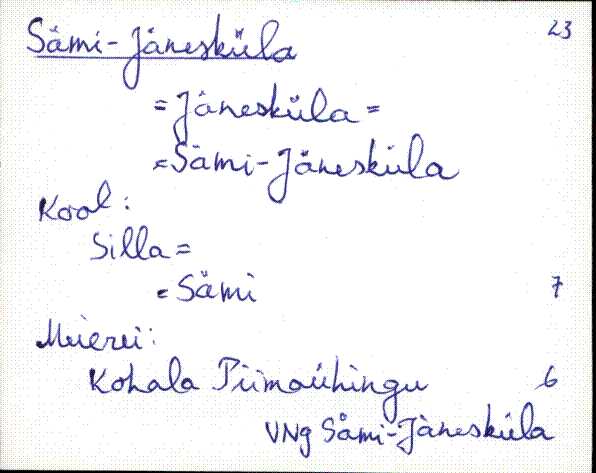 Sämi-Jänesküla 23
= Jänesküla =
= Sämi-Jänesküla
Kool:
Silla =
= Sämi 7
Meierei:
Kohala Piimaühingu 6
VNg Sämi-Jänesküla